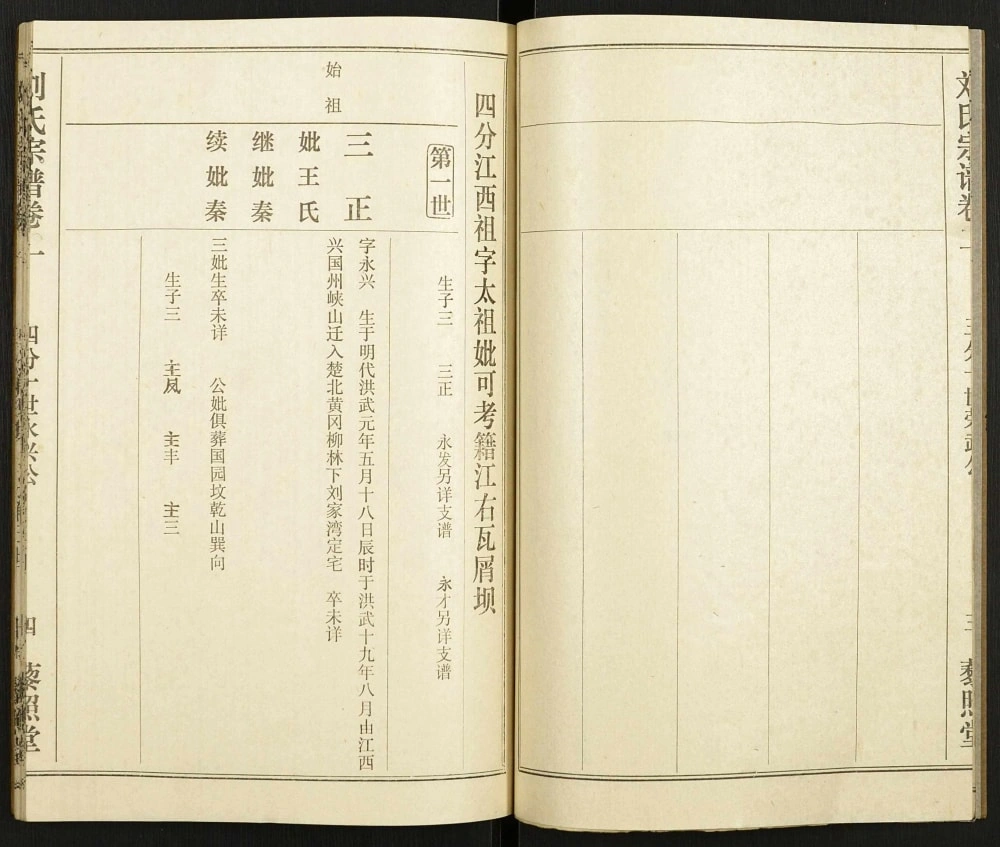 刘氏宗谱卷一
三
藜照堂
四分江西祖字太祖妣可考籍江右瓦屑坝
第一世
生子三 三正 永发另详支谱 永才另详支谱
始祖
三正
字永兴 生于明代洪武元年五月十八日辰时于洪武十九年八月由江西
兴国州峡山迁入楚北黄冈柳林下刘家湾定宅 卒未详
妣王氏
继妣秦
续妣秦
三妣生卒未详 公妣俱葬国园坟乾山巽向
生子三 主凤 主丰 主三
刘氏宗谱卷一
四分一世永兴公
四
藜照堂